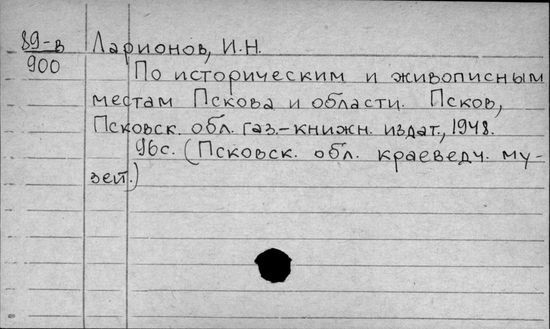 89-в Ларионов, И.Н.
900
По историческим и живописным
местам Пскова и области. Псков,
Псковск. обл. газ.-книжн. издат., 1948.
96с. (Псковск. обл. краеведч. му-
зей.)